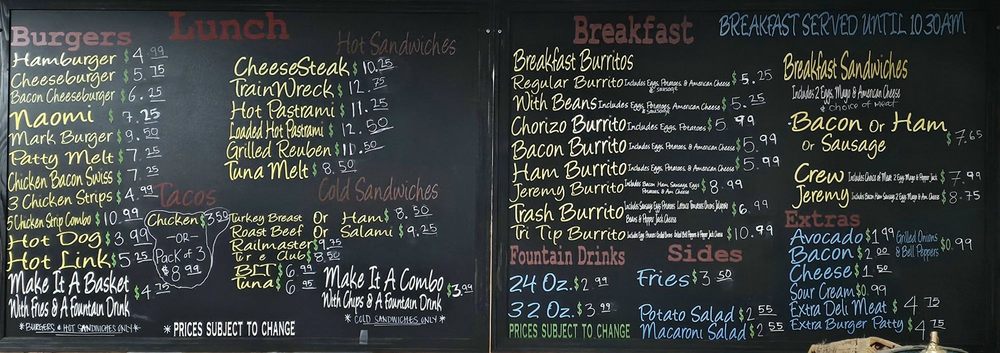 Lunch
Burgers
Hamburger $4.99
Cheeseburger $5.75
Bacon Cheeseburger $6.25
Naomi $7.25
Mark Burger $9.50
Patty Melt $7.25
Chicken Bacon Swiss $7.25
3 Chicken Strips $4.99
5 Chicken Strip Combo $10.99
Hot Dog $3.99
Hot Link $5.25
Make It A Basket
With Fries & A Fountain Drink $4.75
*BURGERS & HOT SANDWICHES ONLY*
Hot Sandwiches
CheeseSteak $10.25
TrainWreck $12.75
Hot Pastrami $11.25
Loaded Hot Pastrami $12.50
Grilled Reuben $11.50
Tuna Melt $8.50
Tacos
Chicken $3.50
-OR-
Pack of 3
$8.99
Cold Sandwiches
Turkey Breast Or Ham $8.50
Roast Beef Or Salami $9.25
Railmaster $9.25
Club $8.50
BLT $6.99
Tuna $6.95
Make It A Combo
With Chips & A Fountain Drink $3.99
*COLD SANDWICHES ONLY*
*PRICES SUBJECT TO CHANGE
Breakfast
BREAKFAST SERVED UNTIL 10:30AM
Breakfast Burritos
Regular Burrito Includes Eggs, Potatoes, & American Cheese $5.25
& Sausage
With Beans Includes Eggs, Potatoes, American Cheese $5.25
& Sausage
Chorizo Burrito Includes Eggs, Potatoes $5.99
Bacon Burrito Includes Eggs, Potatoes, & American Cheese $5.99
Ham Burrito Includes Eggs, Potatoes, & American Cheese $5.99
Jeremy Burrito Includes Bacon Ham Sausage Eggs $8.99
Potatoes & Am Cheese
Trash Burrito Includes Sausage Eggs Potatoes Lettuce Tomatoes Onions Jalapeno $6.99
Beans & Pepper Jack Cheese
Tri Tip Burrito Includes Eggs Potatoes Grilled Onions Grilled Bell Peppers & Pepper Jack Cheese $10.99
Breakfast Sandwiches
Includes 2 Eggs, Mayo & American Cheese
& Choice of Meat
Bacon Or Ham
Or Sausage $7.65
Crew Includes Choice of Meat 2 Eggs Mayo & Pepper Jack $7.99
Jeremy Includes Bacon Ham Sausage 2 Eggs Mayo & Am Cheese $8.75
Extras
Avocado $1.99
Bacon $2.00
Cheese $1.50
Sour Cream $0.99
Extra Deli Meat $4.75
Extra Burger Patty $4.75
Grilled Onions
& Bell Peppers $0.99
Fountain Drinks
24 Oz. $2.99
32 Oz. $3.99
PRICES SUBJECT TO CHANGE
Sides
Fries $3.50
Potato Salad $2.55
Macaroni Salad $2.55